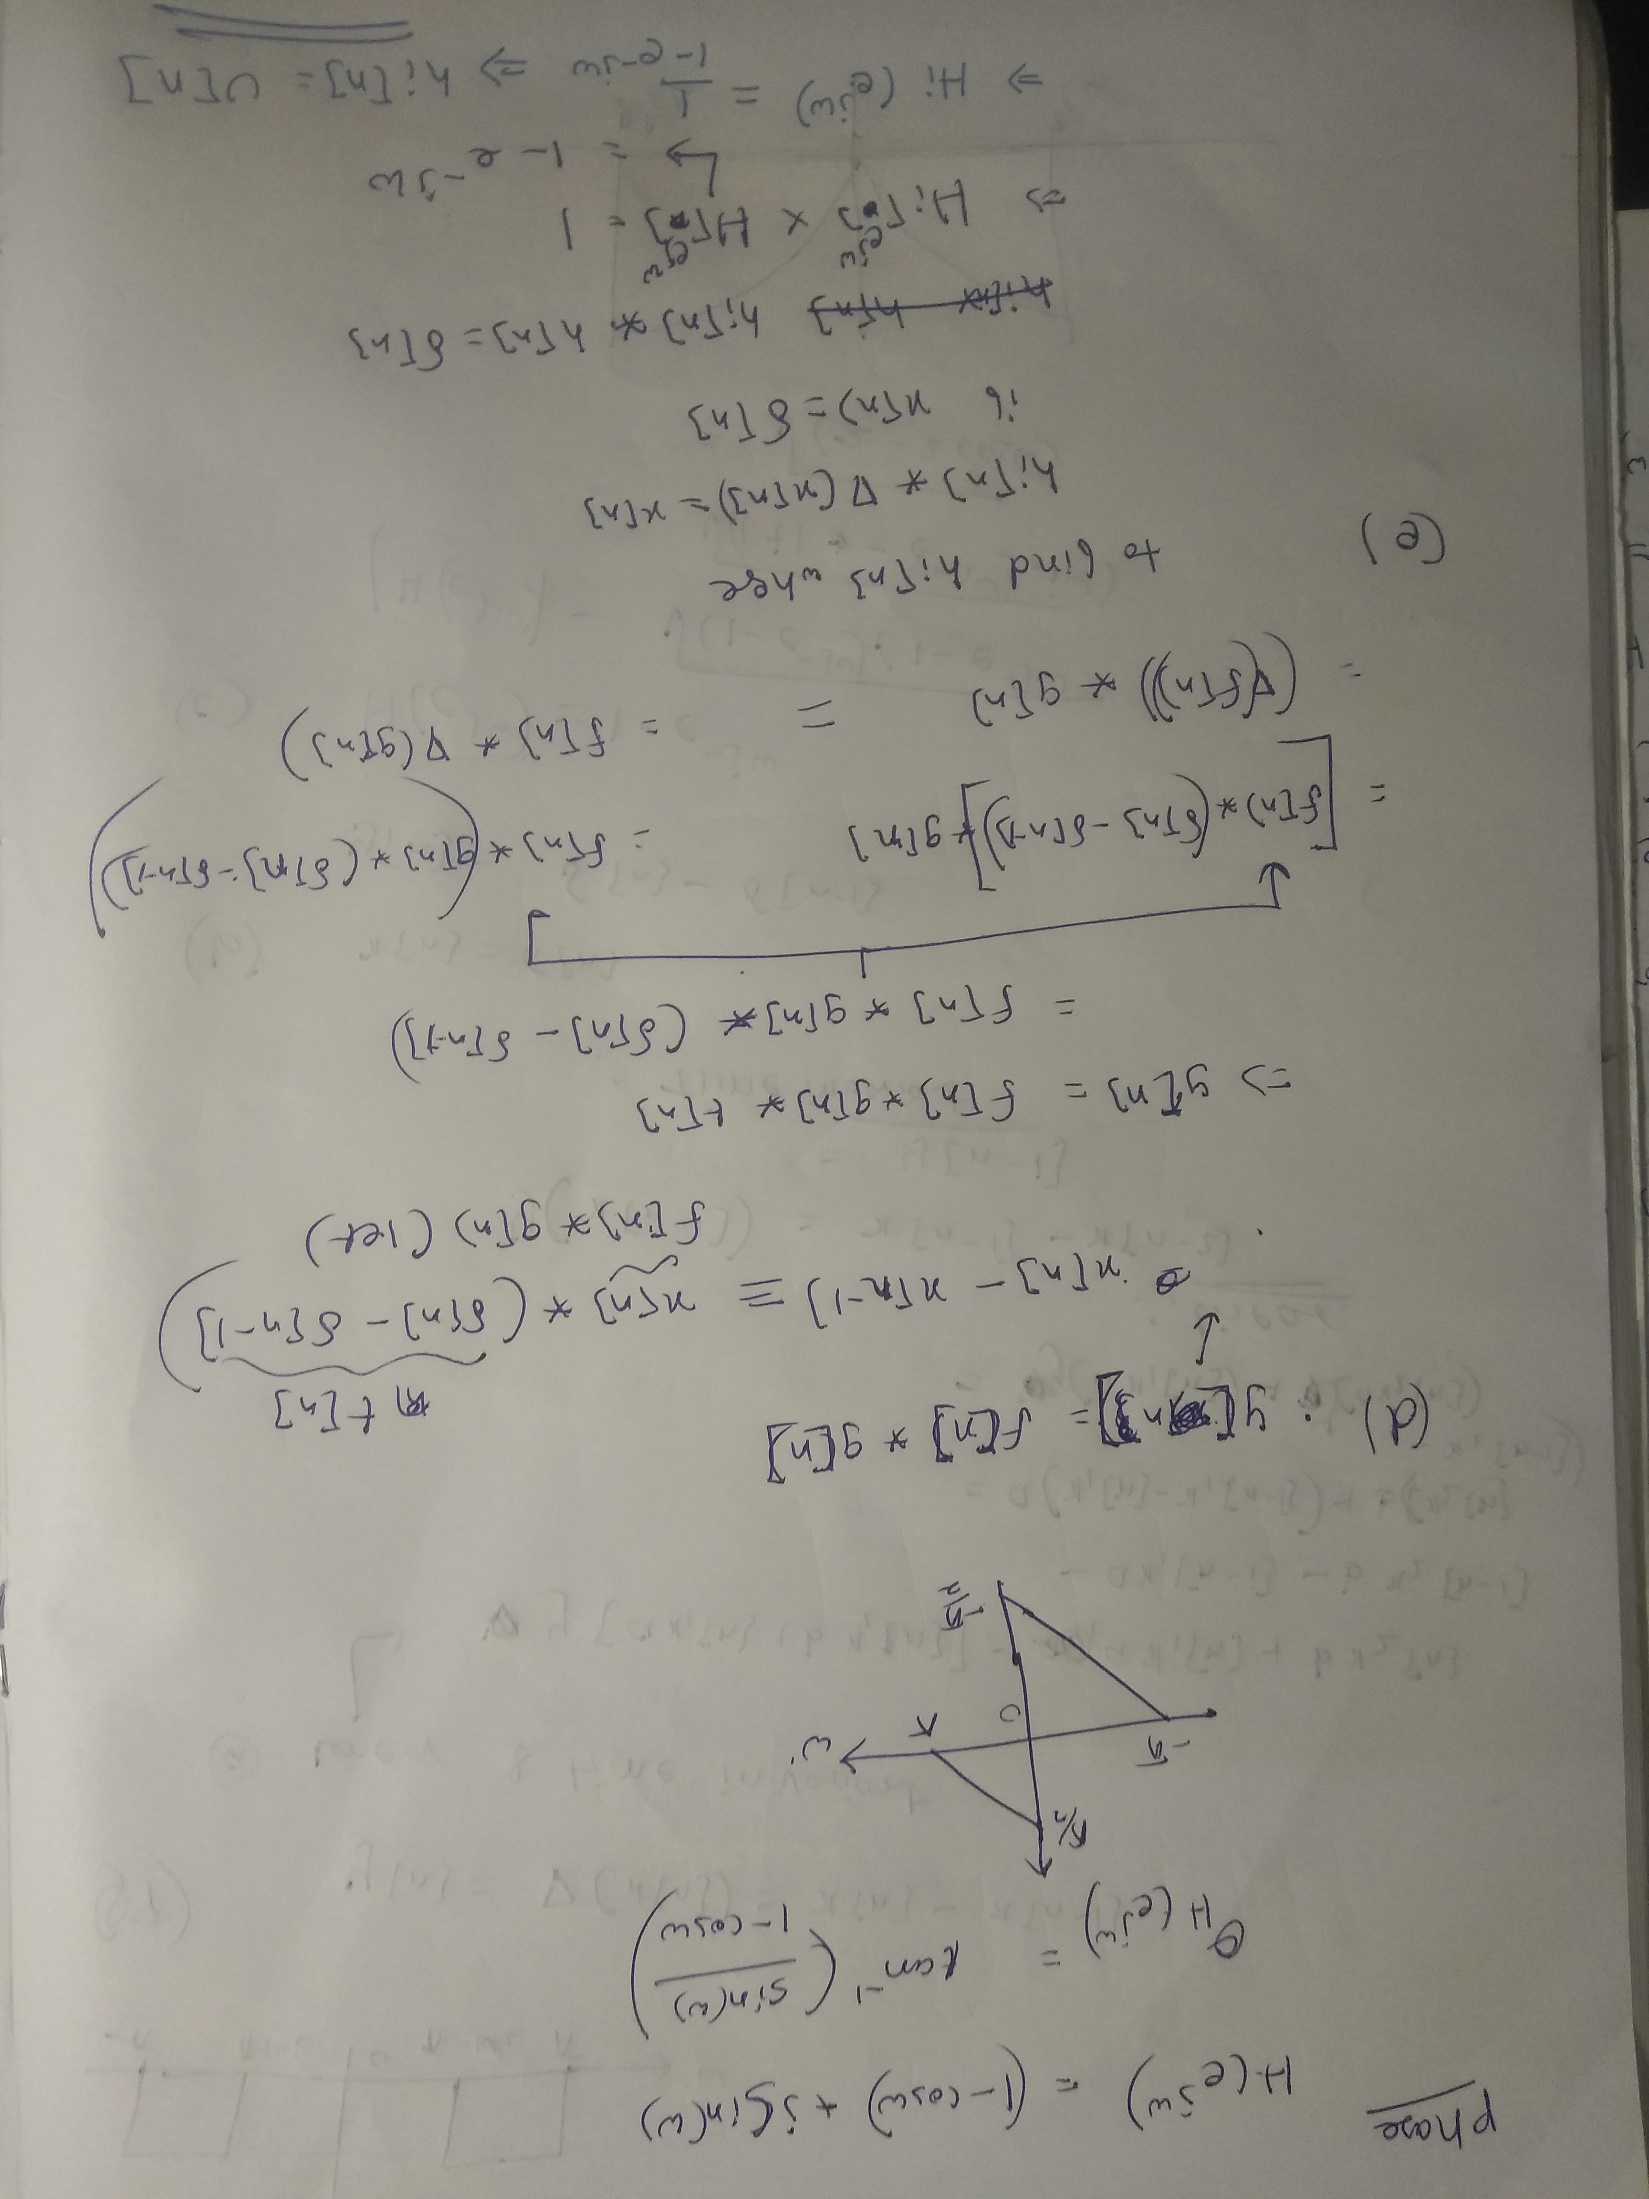 phase H(e^jω) = (1-cosω) + jSin(ω)
θ_H(e^jω) = tan⁻¹ (sin(ω) / 1-cosω)
π/2
-π 0 π ω
-π/2
(d) : y[n] = f[n] * g[n]
t[n]
x[n] - x[n-1] ≡ x[n] * (δ[n] - δ[n-1])
f[n] * g[n] (let)
=> y[n] = f[n] * g[n] * t[n]
= f[n] * g[n] * (δ[n] - δ[n-1])
= [f[n] * (δ[n] - δ[n-1])] * g[n] = f[n] * (g[n] * (δ[n] - δ[n-1]))
= (∇(f[n])) * g[n] = = f[n] * ∇(g[n])
(e) to find hi[n] where
hi[n] * ∇(x[n]) = x[n]
if x[n] = δ[n]
hi[n] * h[n] = δ[n]
=> Hi[e^jω] × H[e^jω] = 1
↳ = 1 - e^-jω
=> Hi (e^jω) = 1 / 1-e^-jω => hi[n] = U[n]